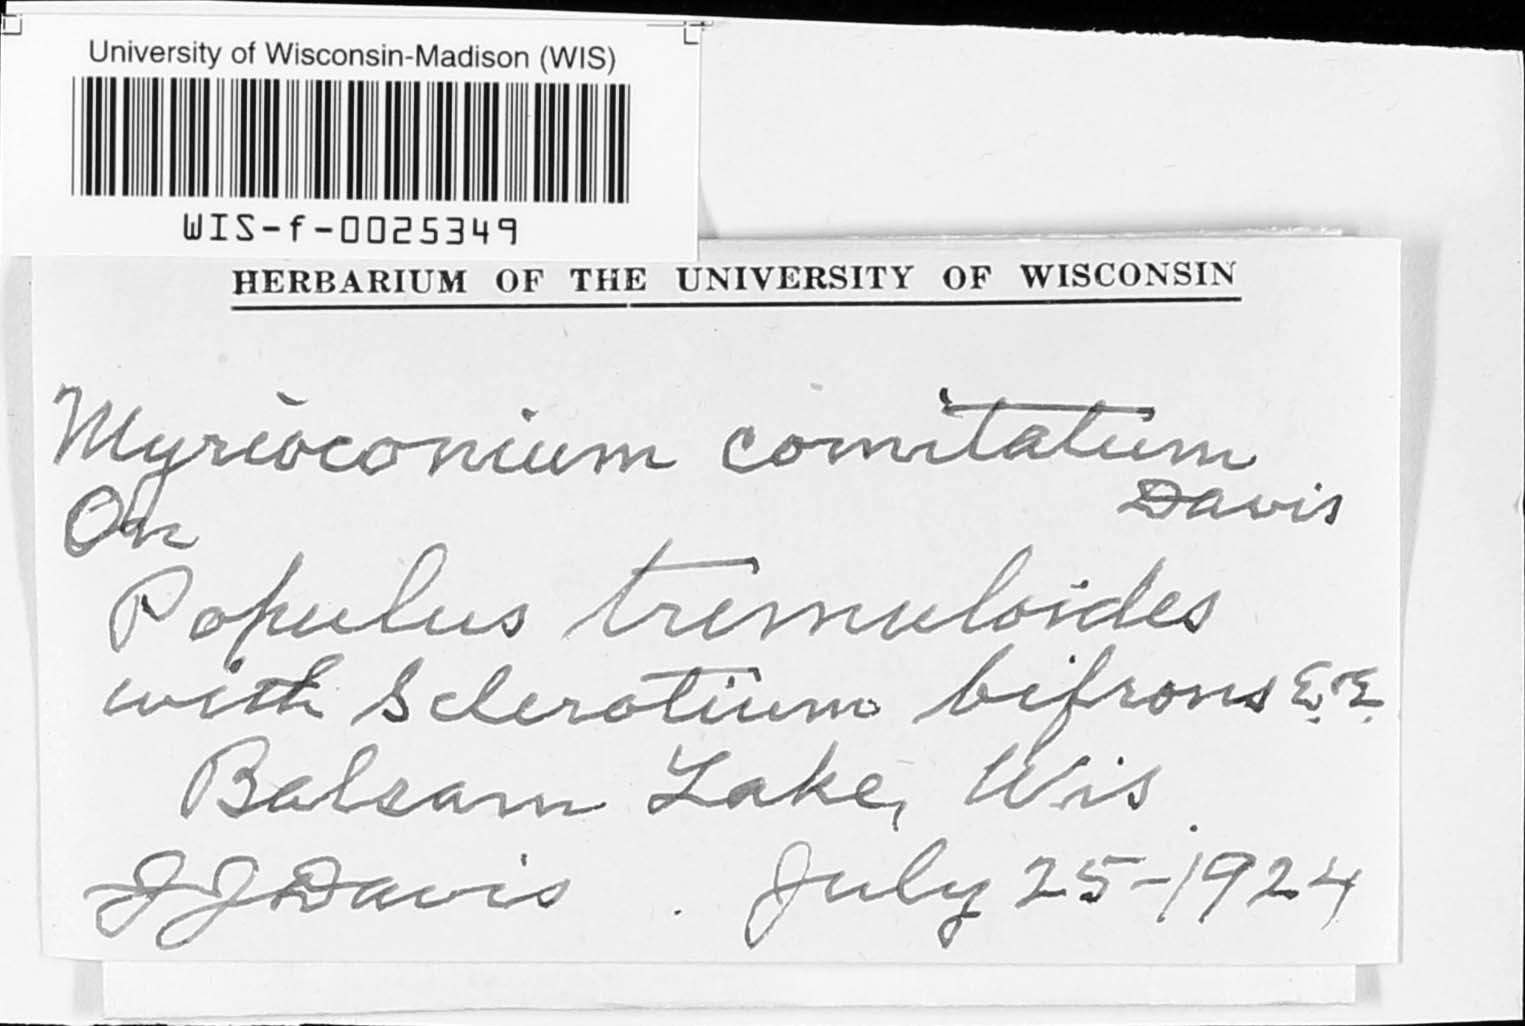 University of Wisconsin-Madison (WIS)
WIS-f-0025349
HERBARIUM OF THE UNIVERSITY OF WISCONSIN
Myrioconium comitatum
Davis
On
Populus tremuloides
with Sclerotium bifrons E.&E.
Balsam Lake, Wis.
J J Davis. July 25-1924